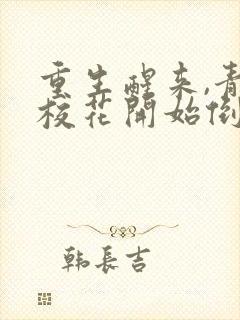 重生醒来,青
校花開始倒
韩長吉